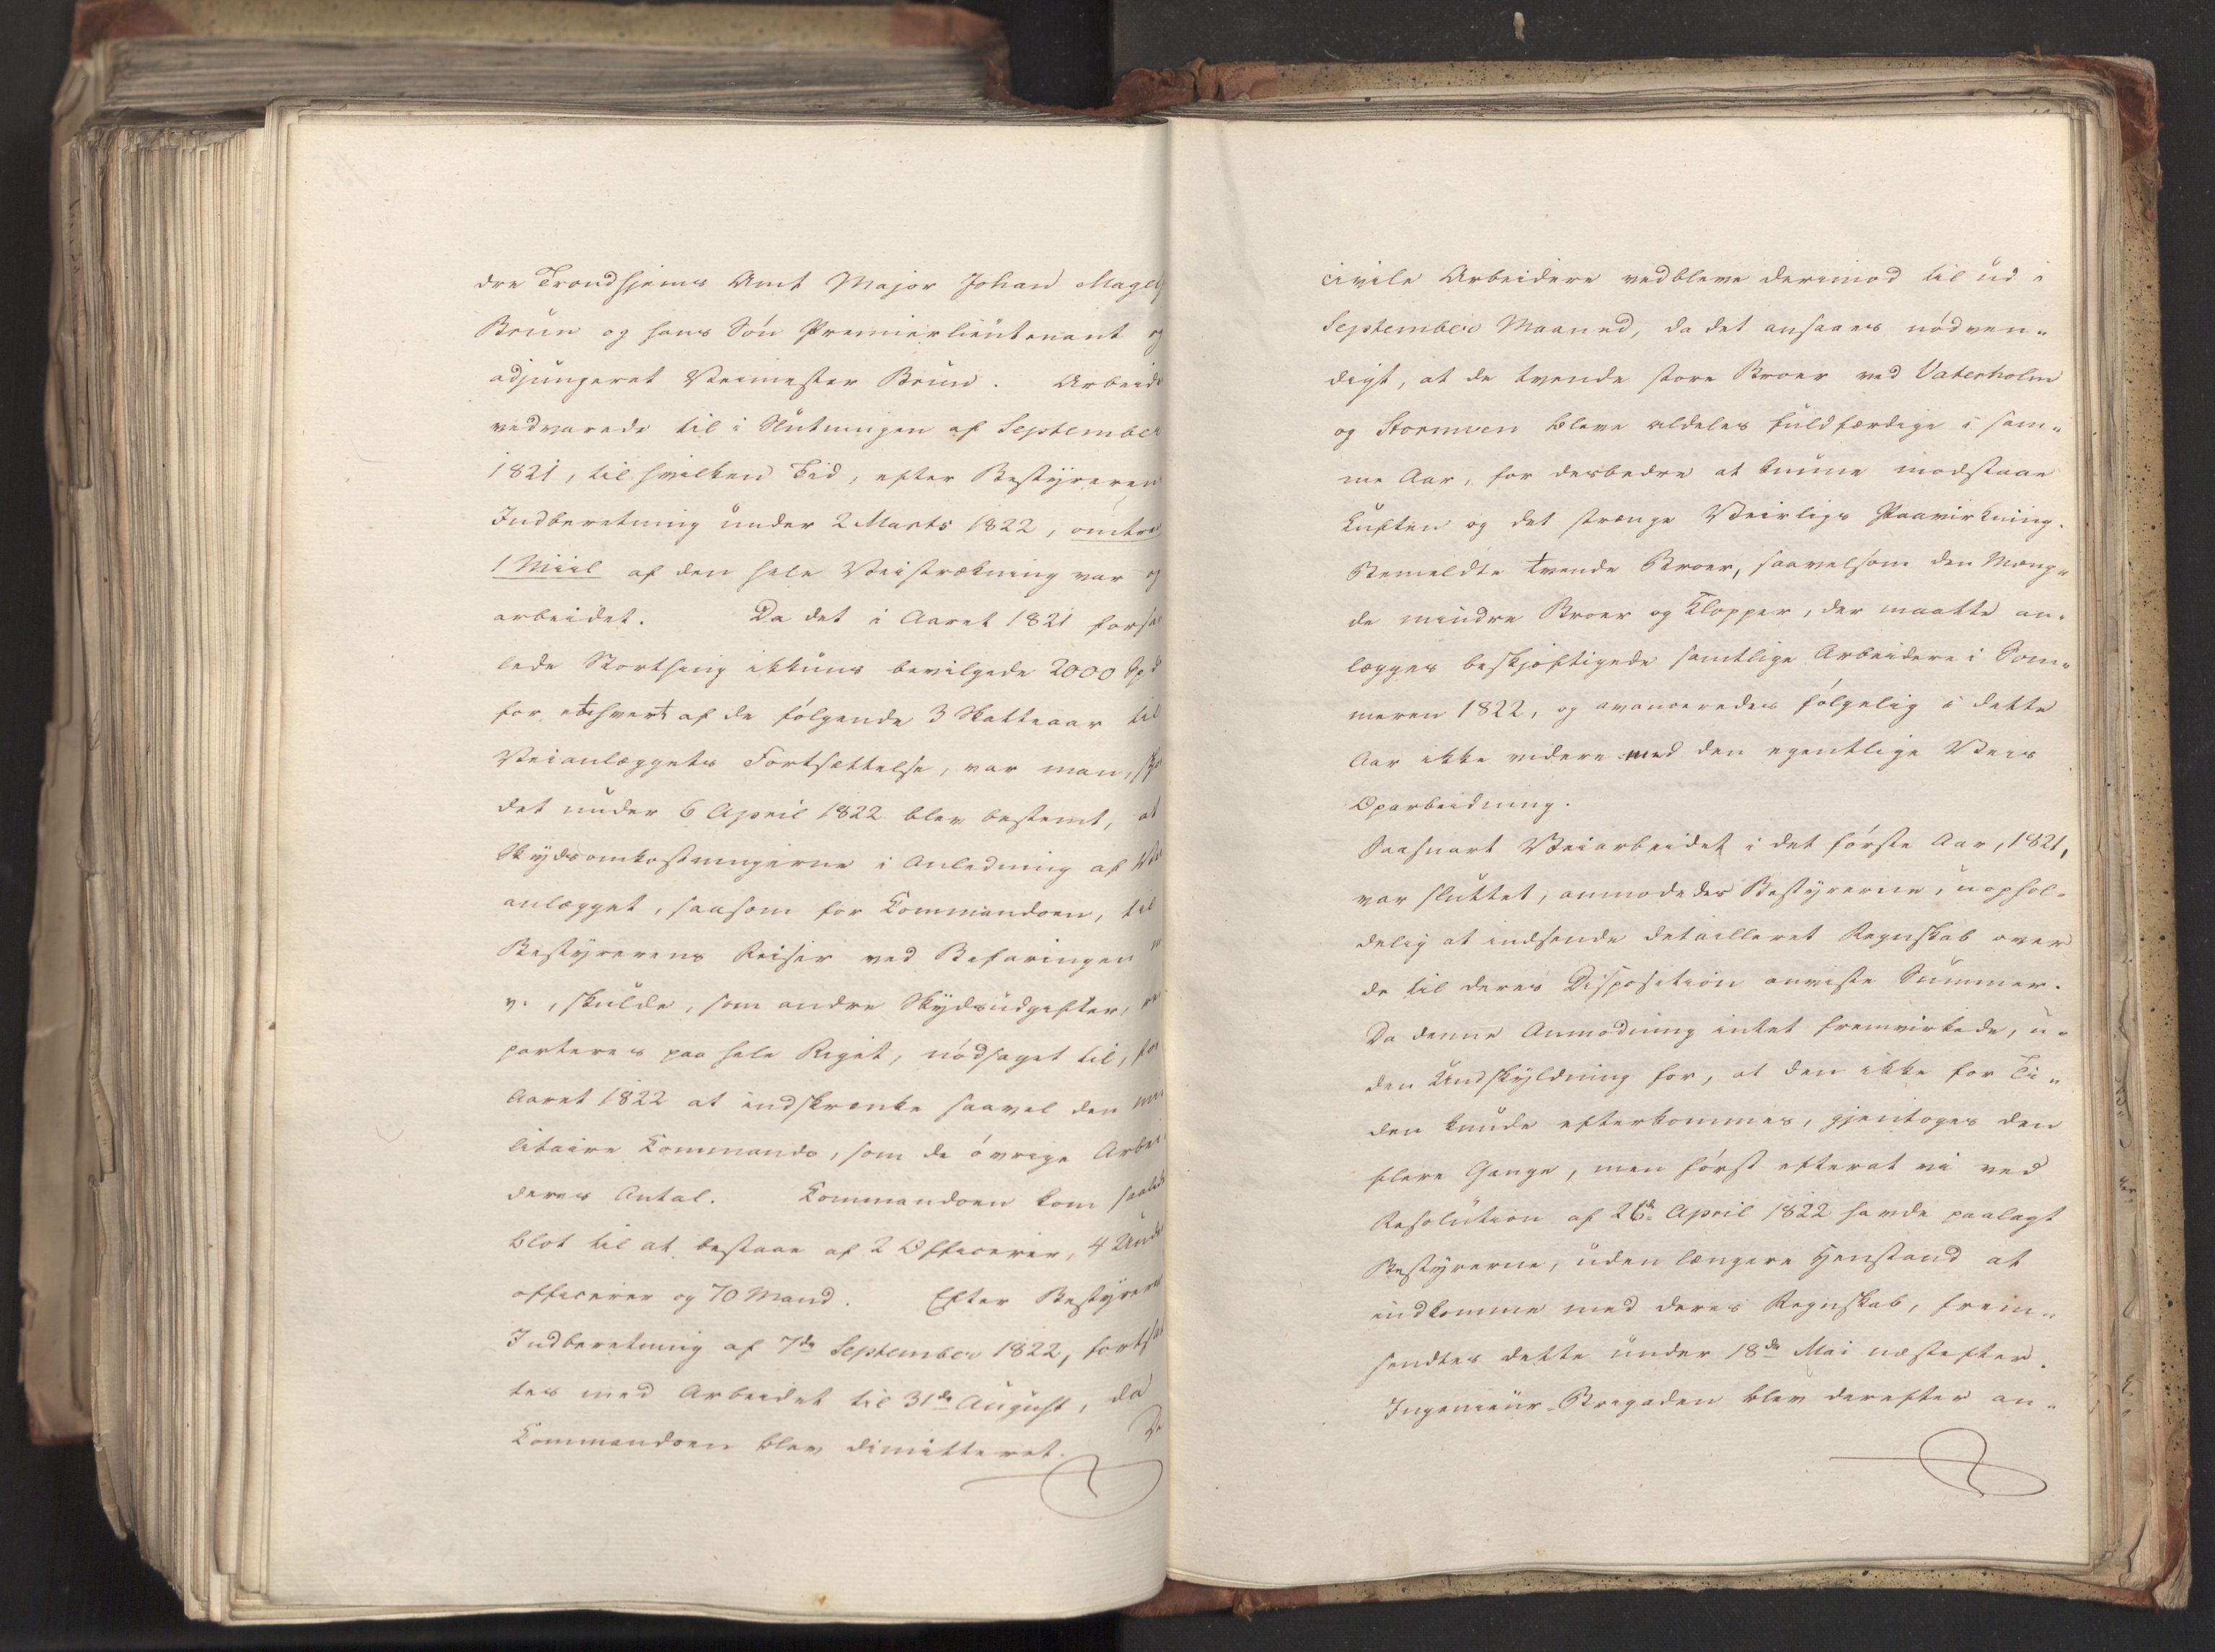 dre Trondhjems Amt Major Johan Magel
Brun og hans Søn Premierlieutenant og
adjungeret Veimester Brun. Arbeide
vedvarede til i Slutningen af September
1821, til hvilken Tid, efter Bestyreren
Indberetning under 2 Marts 1822, omtre
1 Miil af den hele Veistrækning var op
arbeidet. Da det i Aaret 1821 forsa
lede Storthing ikkuns bevilgede 2000 Spd
for ethvert af de følgende 3 Skatteaar til
Veianlæggets Fortsættelse, var man,
det under 6 April 1822 blev bestemt, at
Skydsomkostningerne i Anledning af Vei
anlægget, saasom for Commandoen, til
Bestyrerens Reiser ved Befaringen m
v., skulde, som andre Skydsudgifter, re
parteres paa hele Riget, nødsaget til, for
Aaret 1822 at indskrænke saavel den mi
litaire Commando, som de øvrige Arbei
deres Antal. Commandoen kom saaled
blot til at bestaae af 2 Officerer, 4 Unde
officerer og 70 Mand. Efter Bestyrere
Indberetning af 7de September 1822, fortsat
tes med Arbeidet til 31de August, da
Commandoen blev dimitteret. De
civile Arbeidere vedbleve derimod til ud i
September Maaned, da det ansaaes nødven-
digt, at de tvende store Broer ved Vaterholm
og Stormoen bleve aldeles fuldfærdige i sam-
me Aar, for desbedre at kunne modstaae
Luften og det strænge Veirligs Paavirkning.
Bemeldte tvende Broer, saavelsom den Mæng-
de mindre Broer og Klopper, der maatte an-
lægges beskjæftigede samtlige Arbeidere i Som-
meren 1822, og avanceredes følgelig i dette
Aar ikke videre med den egentlige Veis
Oparbeidning.
Saasnart Veiarbeidet i det første Aar, 1821,
var sluttet, anmodedes Bestyrerne, uophol-
delig at indsende detailleret Regnskab over
de til deres Disposition anviste Summer.
Da denne Anmodning intet fremvirkede, u-
den Undskyldning for, at den ikke for Ti-
den kunde efterkommes, gjentoges den
flere Gange, men først efterat vi ved
Resolution af 26de April 1822 havde paalagt
Bestyrerne, uden længere Henstand at
indkomme med deres Regnskab, frem-
sendtes dette under 18de Mai næstefter.
Ingenieur-Brigaden blev derefter an-